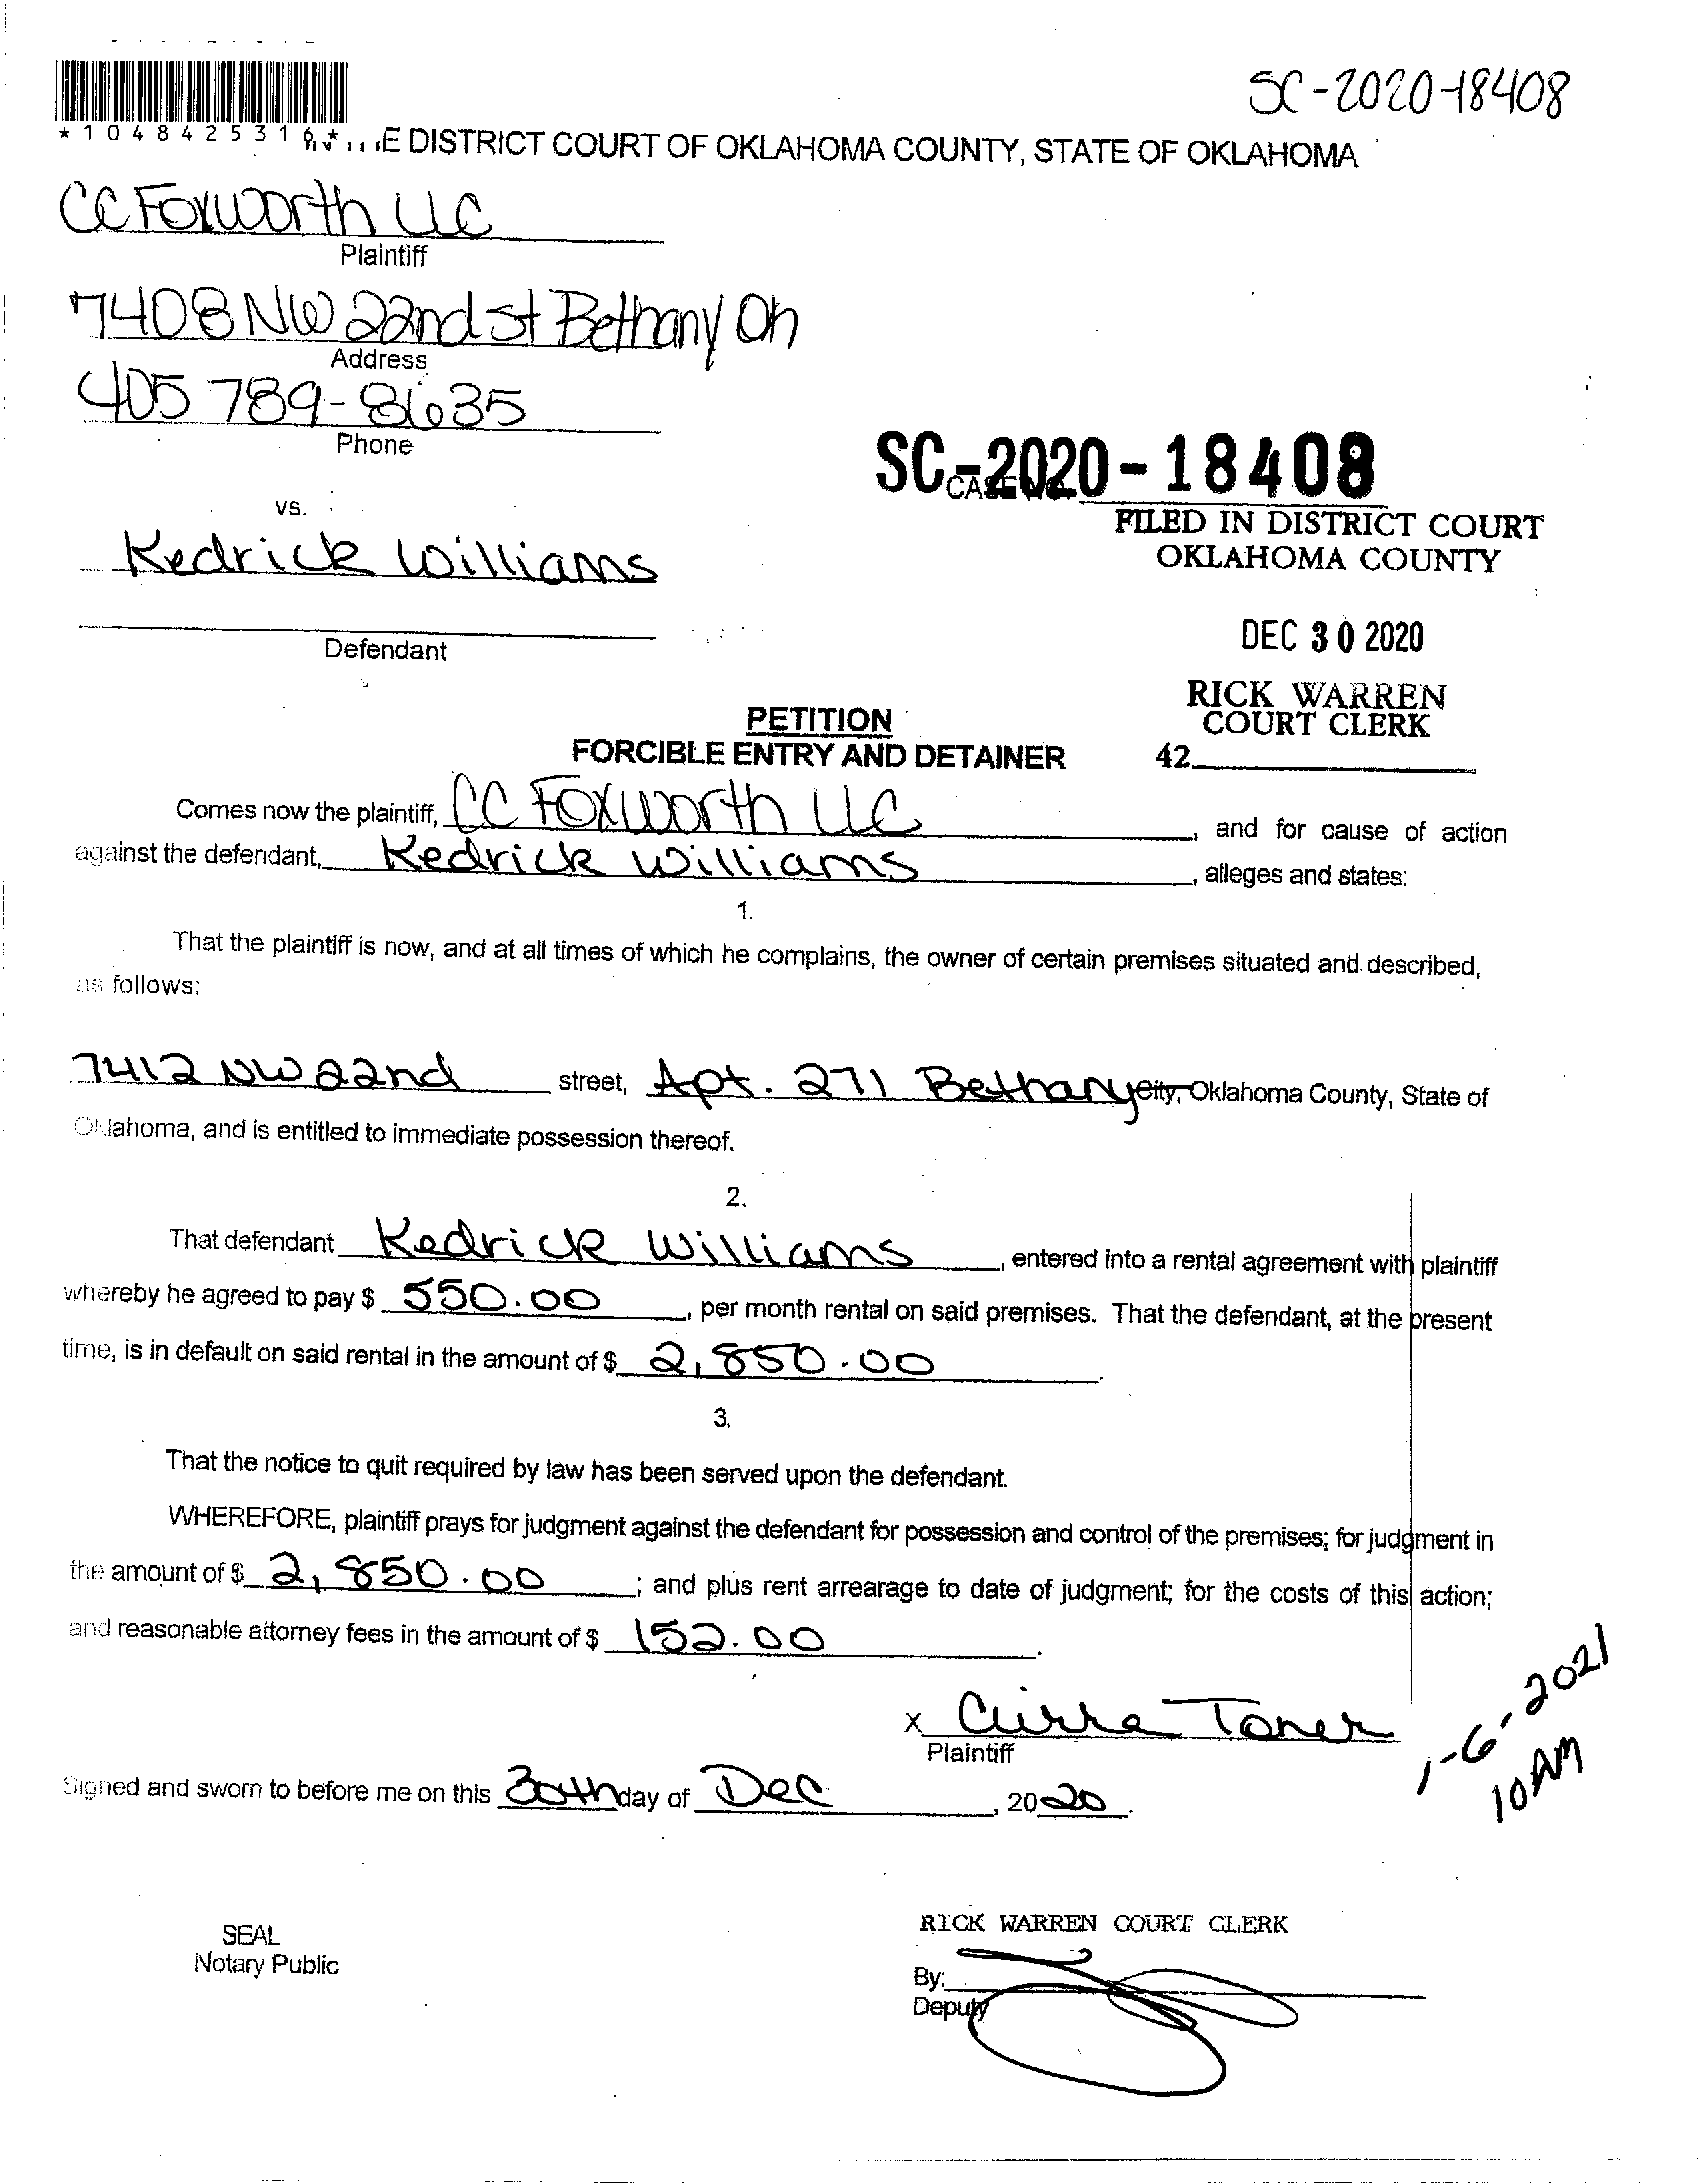 SC-2020-18408
*1048425316* E DISTRICT COURT OF OKLAHOMA COUNTY, STATE OF OKLAHOMA
CC Foxworth LLC
Plaintiff
7408 NW 22nd st Bethany Oh
Address
405 789-8635
Phone
SC-2020-18408
FILED IN DISTRICT COURT
OKLAHOMA COUNTY
vs.
Kedrick Williams
Defendant
DEC 30 2020
RICK WARREN
COURT CLERK
42
PETITION
FORCIBLE ENTRY AND DETAINER
Comes now the plaintiff, CC Foxworth LLC, and for cause of action
against the defendant, Kedrick Williams, alleges and states:
1.
That the plaintiff is now, and at all times of which he complains, the owner of certain premises situated and described,
as follows:
7412 NW 22nd street, Apt. 271 Bethany City, Oklahoma County, State of
Oklahoma, and is entitled to immediate possession thereof.
2.
That defendant Kedrick Williams, entered into a rental agreement with plaintiff
whereby he agreed to pay $ 550.00, per month rental on said premises. That the defendant, at the present
time, is in default on said rental in the amount of $ 2,850.00.
3.
That the notice to quit required by law has been served upon the defendant.
WHEREFORE, plaintiff prays for judgment against the defendant for possession and control of the premises; for judgment in
the amount of $ 2,850.00; and plus rent arrearage to date of judgment; for the costs of this action;
and reasonable attorney fees in the amount of $ 152.00.
X Cirra Toner
Plaintiff
1-6-2021
10 AM
Signed and sworn to before me on this 30th day of Dec, 2020.
SEAL
Notary Public
RICK WARREN COURT CLERK
By:
Deputy